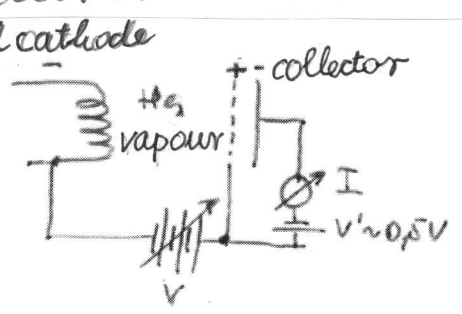 cathode
-
+ - collector
Hg
vapour
I
V'~0,5V
V